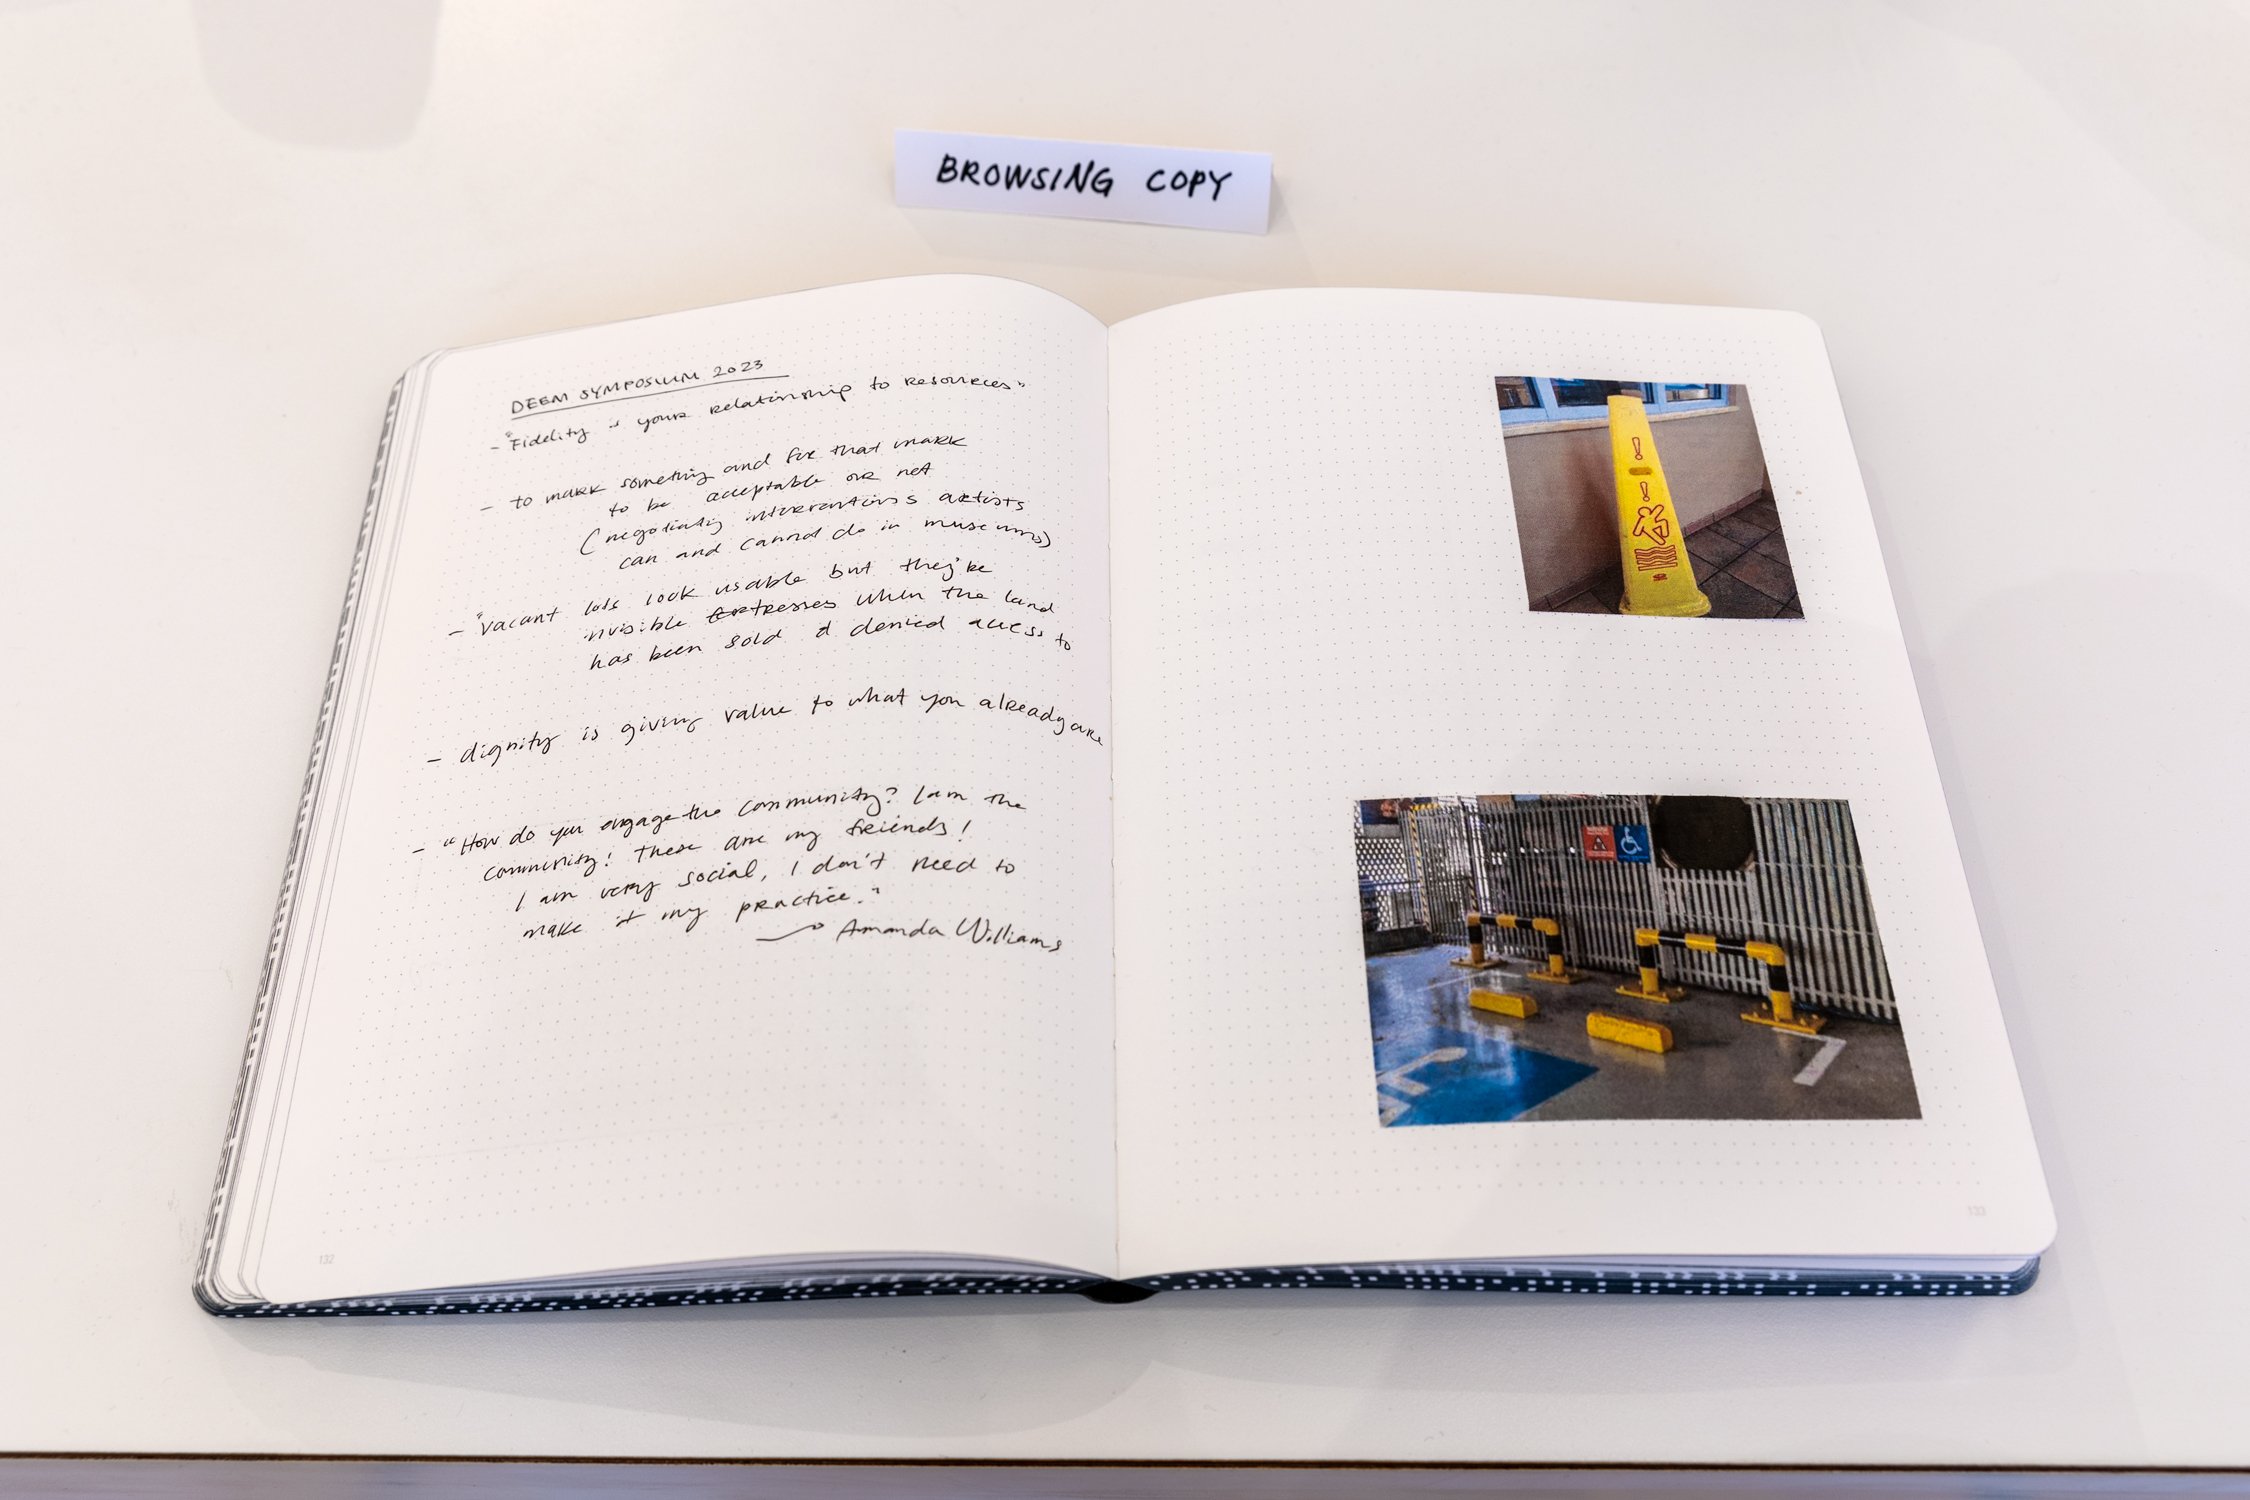 BROWSING COPY
DEEM SYMPOSIUM 2023
- "Fidelity is your relationship to resources"
- to mark something and for that mark
to be acceptable or not
(negotiating interventions artists
can and cannot do in museums)
- "vacant lots look usable but they're
invisible fortresses when the land
has been sold & denied access to
- dignity is giving value to what you already are
- "How do you engage the community? I am the
community! These are my friends!
I am very social, I don't need to
make it my practice."
Amanda Williams
132
133